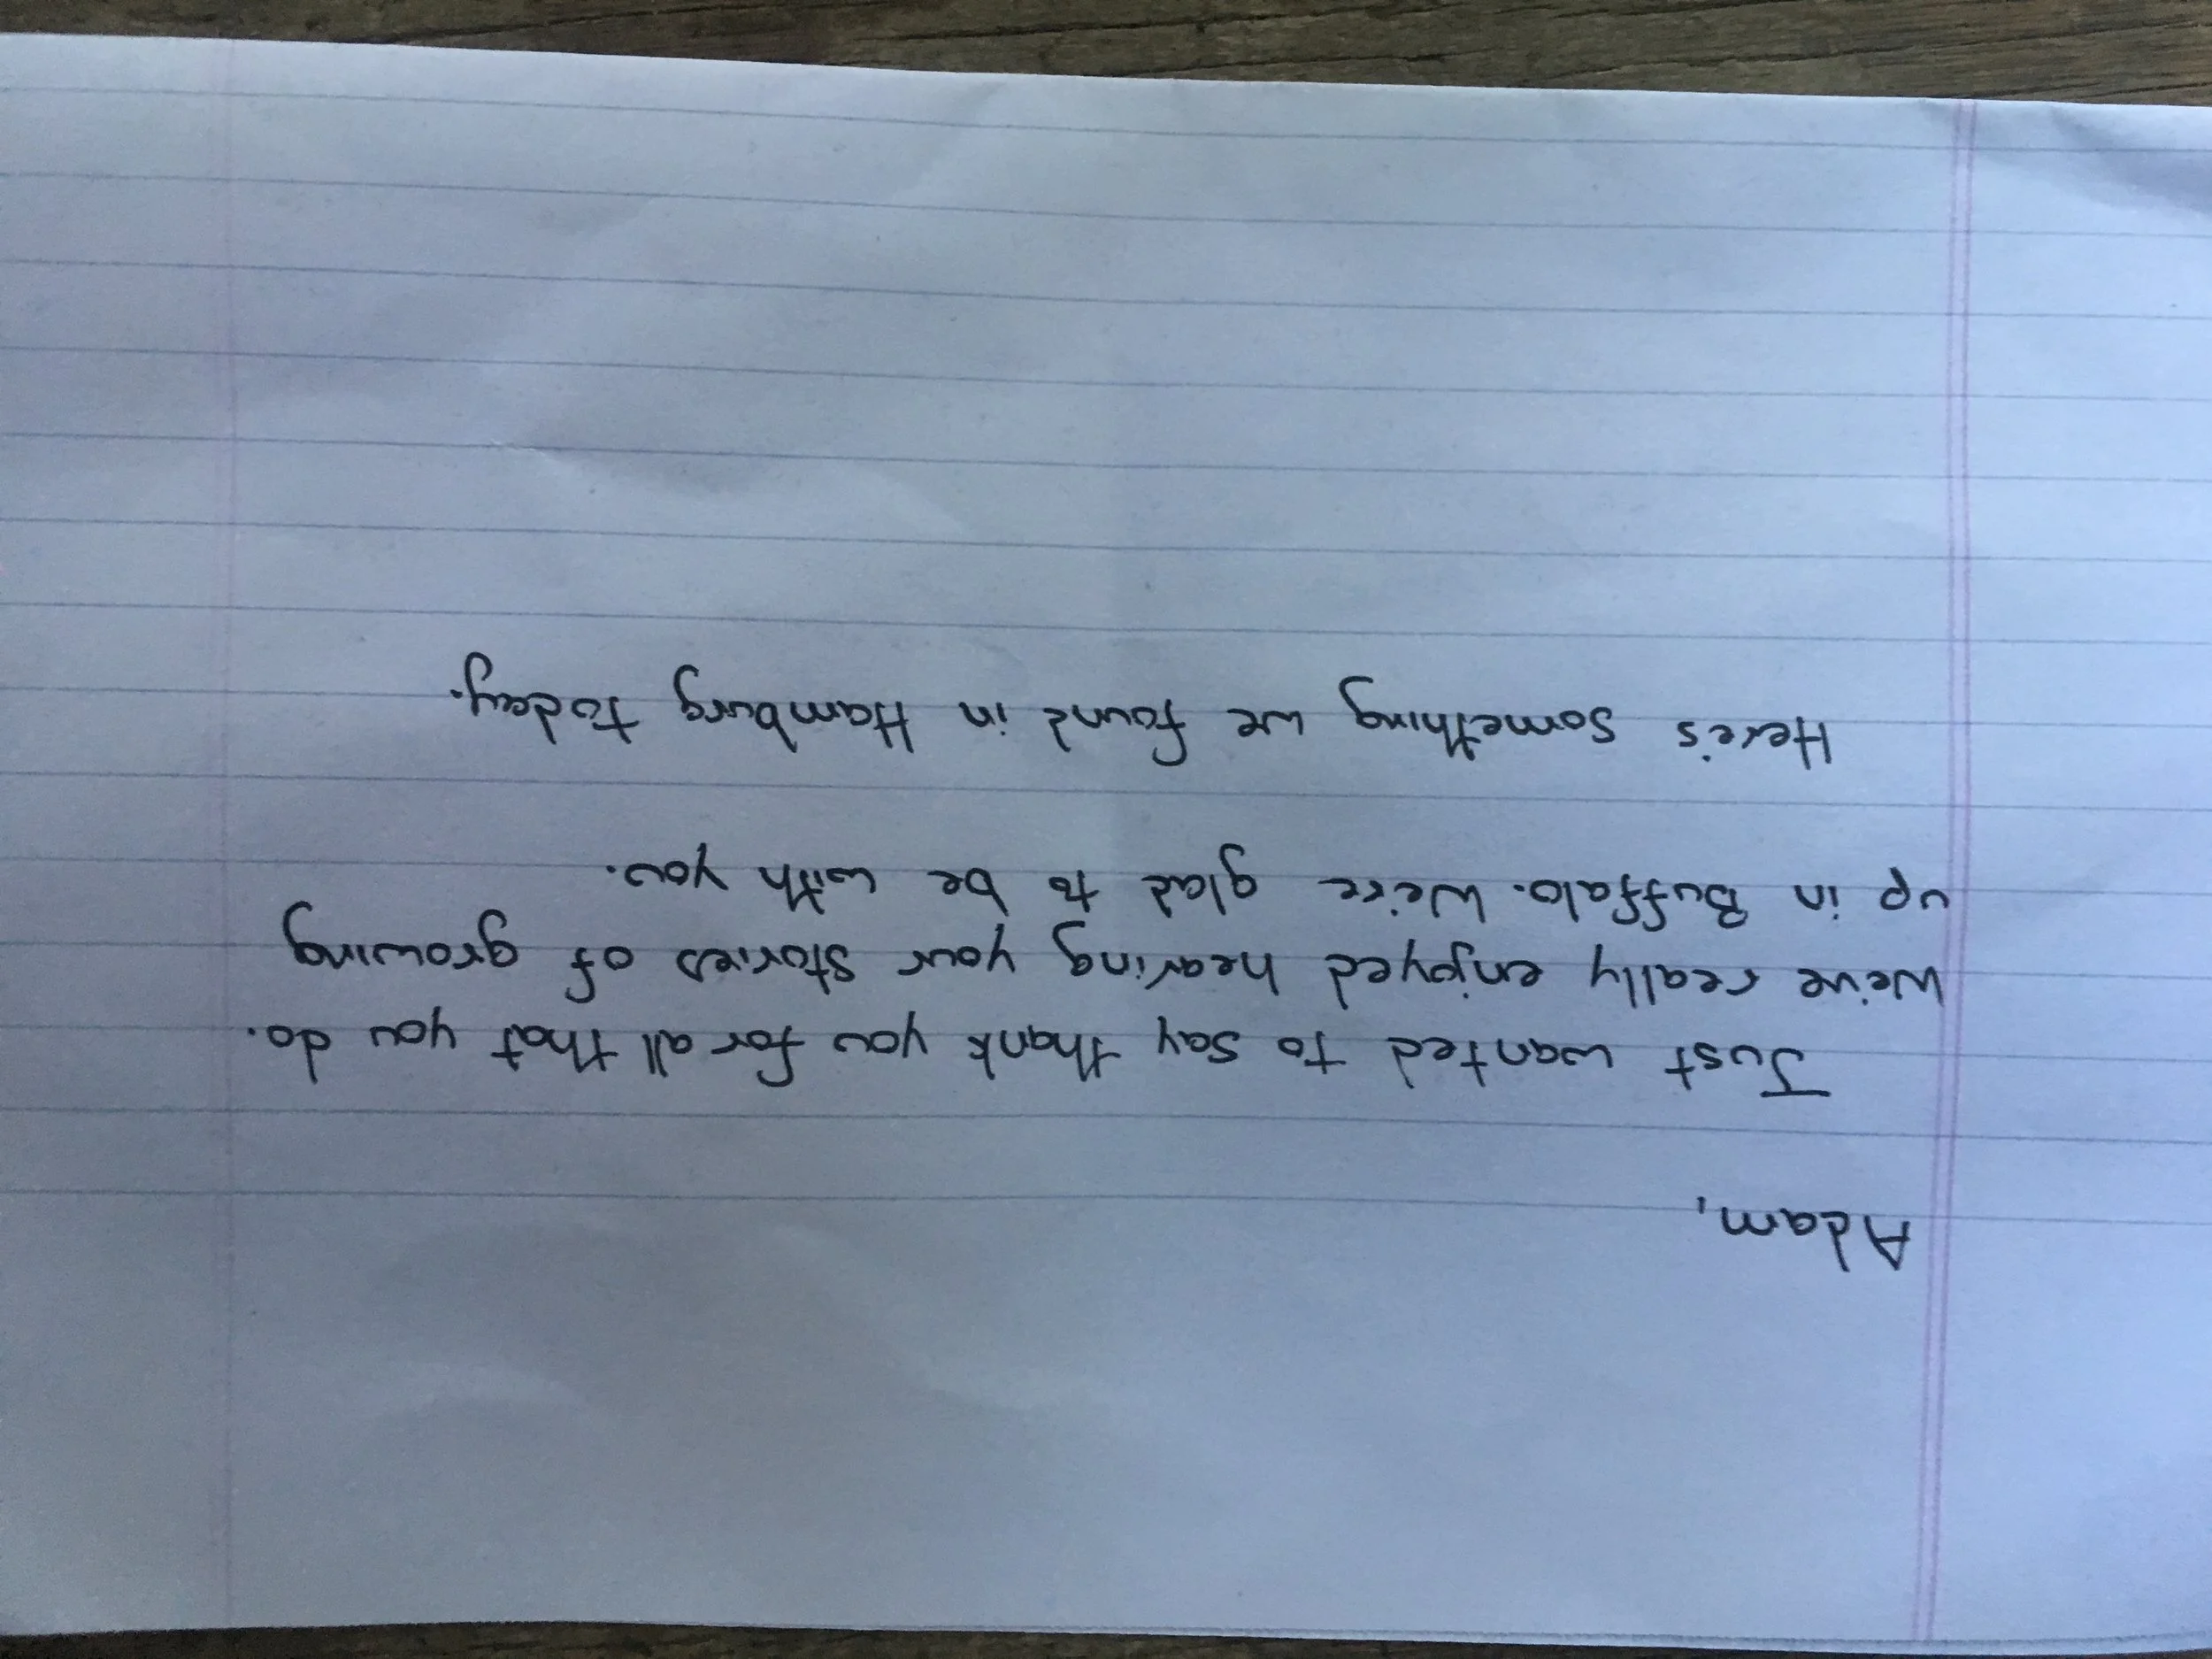 Adam,
Just wanted to say thank you for all that you do.
We've really enjoyed hearing your stories of growing
up in Buffalo. We're glad to be with you.
Here's something we found in Hamburg today.